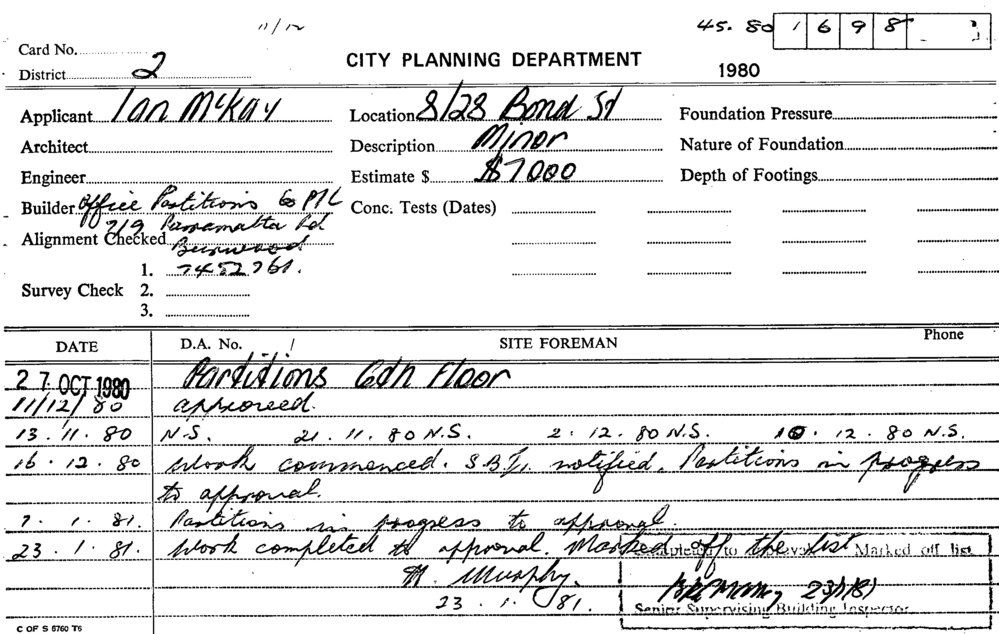 11/12
45. 80 1 6 9 8
Card No.
District 2
CITY PLANNING DEPARTMENT
1980
Applicant Ian McKay
Location 8/28 Bond St
Foundation Pressure
Architect
Description Minor
Nature of Foundation
Engineer
Estimate $ $7000
Depth of Footings
Builder Office Partitions Co P/L
Conc. Tests (Dates)
7/9 Parramatta Rd
Alignment Checked Burwood
1. 7452761.
Survey Check 2.
3.
DATE D.A. No. SITE FOREMAN Phone
27 OCT 1980 Partitions 6th Floor
11/12/80 approved.
13.11.80 N.S. 21.11.80 N.S. 2.12.80 N.S. 10.12.80 N.S.
16.12.80 Work commenced. S.B.I. notified. Partitions in progress
to approval.
7.1.81. Partitions in progress to approval.
23.1.81. Work completed to approval. Marked off the list
Completed to approval Marked off list
M. Murphy.
23.1.81.
23/1/81
Senior Supervising Building Inspector
C OF S 6760 T6